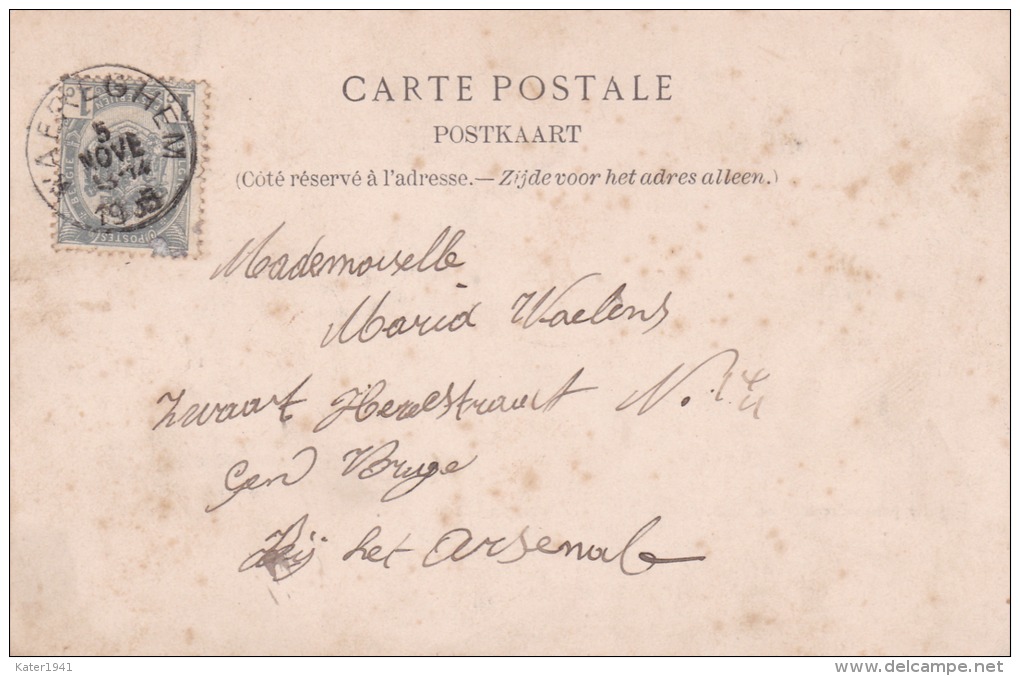 CARTE POSTALE
POSTKAART
(Côté réservé à l'adresse.— Zijde voor het adres alleen.)
WAEREGHEM
5
NOVE
13-14
POSTES
Mademoiselle
Maria Waelens
Zwaart Herestraat N.
Gen Bruge
Bij het Arsenale
Kater1941
www.delcampe.net